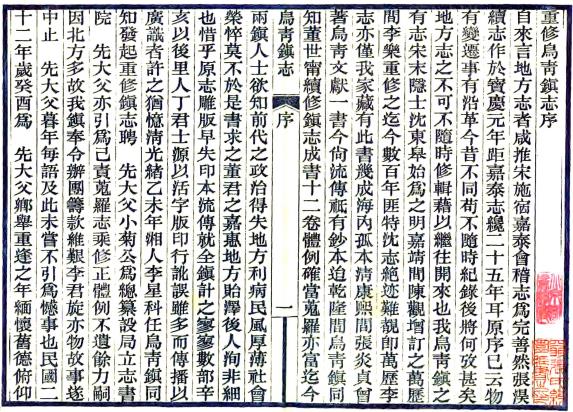 重修烏青鎮志序
自來言地方志者咸推宋施宿嘉泰會稽志為完善然張淏
續志作於寶慶元年距嘉泰志纔二十五年耳原序已云物
有變遷事有沿革今昔不同苟不隨時紀錄後將何攷甚矣
地方志之不可不隨時修輯藉以繼往開來也我烏青鎮之
有志宋末隱士沈東皋始為之明嘉靖間陳觀增訂之萬歷
間李樂重修之迄今數百年匪特沈志絕迹難覩卽萬歷李
志亦僅我家藏有此書幾成海內孤本清康熙間張炎貞曾
著烏青文獻一書今尙流傳祗有鈔本迨乾隆間烏青鎮同
知董世甯續修鎮志成書十二卷體例確當蒐羅亦富迄今
烏青鎮志
序
一
兩鎮人士欲知前代之政治得失地方利病民風厚薄社會
榮悴莫不於是書求之董君之嘉惠地方貽澤後人洵非細
也惜乎原志雕版早失印本流傳就全鎮計之寥寥數部辛
亥以後里人丁君士源以活字版印行訛誤雖多而傳播以
廣識者許之猶憶清光緒乙未年湘人李星科任烏青鎮同
知發起重修鎮志聘　先大父小菊公為總纂設局立志書
院　先大父亦引為己責蒐羅志乘修正體例不遺餘力嗣
因北方多故我鎮奉令辦團籌款維艱李君旋亦物故事遂
中止　先大父暮年每語及此未嘗不引為憾事也民國二
十二年歲癸酉為　先大父鄉舉重逢之年緬懷舊德俯仰